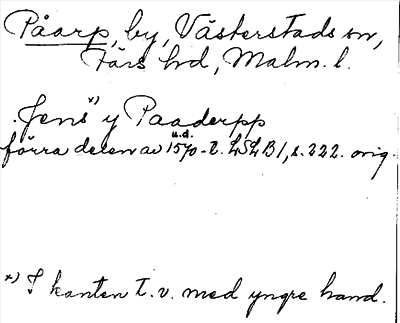 Påarp, by, Västerstads sn,
Färs hd, Malm. l.
Jens *) y Paaderpp
u.d.
förra delen av 1570-t. LSLB1, s. 222. orig.
*) I kanten t. v. med yngre hand.